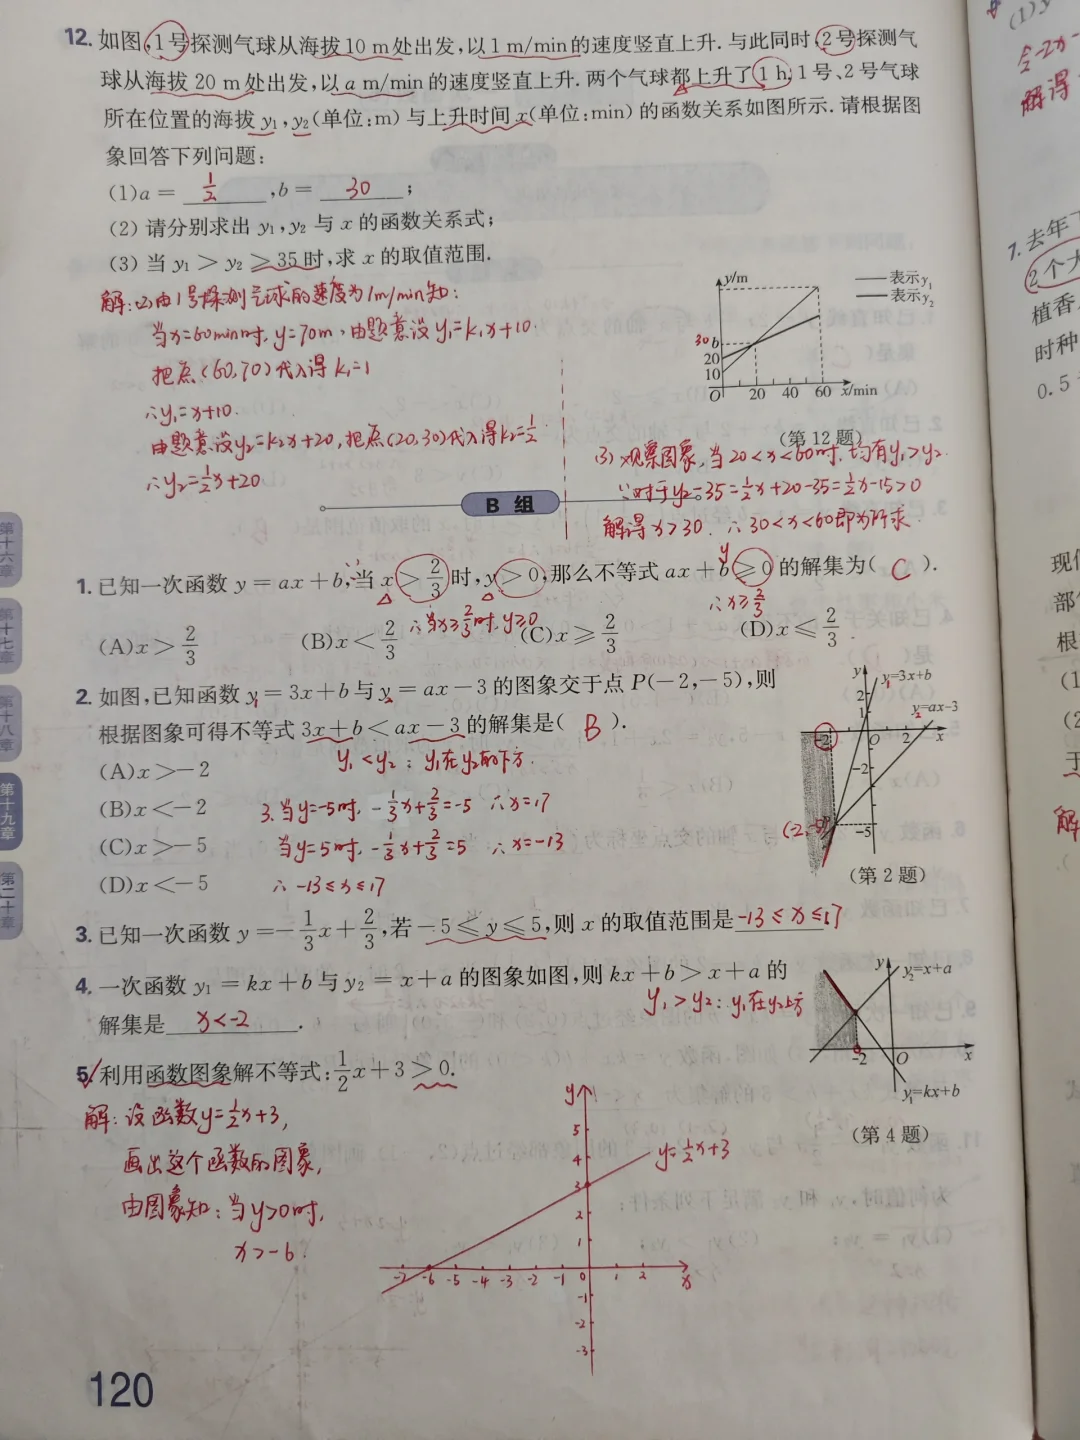 12. 如图,1号探测气球从海拔10 m处出发,以1 m/min的速度竖直上升. 与此同时,2号探测气
球从海拔 20 m 处出发,以 a m/min 的速度竖直上升. 两个气球都上升了1 h. 1号、2号气球
所在位置的海拔 y₁,y₂(单位:m) 与上升时间 x(单位:min) 的函数关系如图所示. 请根据图
象回答下列问题:
(1)a = 1/2 ,b = 30 ;
(2) 请分别求出 y₁,y₂ 与 x 的函数关系式;
(3) 当 y₁ > y₂ ≥ 35 时,求 x 的取值范围.
解:(2)由1号探测气球的速度为1m/min知:
当x=60min时, y=70m, 由题意设y₁=k₁x+10.
把点(60,70)代入得k₁=1
∴y₁=x+10.
由题意设y₂=k₂x+20,把点(20,30)代入得k₂=1/2
∴y₂=1/2x+20
y/m
表示y₁
表示y₂
30 b
20
10
O 20 40 60 x/min
(第12题)
(3)观察图象,当20<x<60时,均有y₁>y₂.
∵对于y₂-35=1/2x+20-35=1/2x-15>0
解得x>30. ∴30<x<60即为所求.
B 组
1. 已知一次函数 y = ax + b,当 x > 2/3 时,y > 0,那么不等式 ax + b ≥ 0 的解集为( C ).
y
∴当x≥2/3时,y≥0
∴x≥2/3
(A)x > 2/3 (B)x < 2/3 (C)x ≥ 2/3 (D)x ≤ 2/3
2. 如图,已知函数 y₁ = 3x + b 与 y₂ = ax - 3 的图象交于点 P(-2,-5),则
根据图象可得不等式 3x + b < ax - 3 的解集是( B ).
y₁<y₂: y₁在y₂的下方.
(A)x > -2
(B)x < -2
(C)x > -5
(D)x < -5
y
y₁=3x+b
y₂=ax-3
2
1
-2 O 2 x
-2
(-2,-5)
-5
(第2题)
3. 当y=-5时, -1/3x+2/3=-5 ∴x=17
当y=5时, -1/3x+2/3=5 ∴x=-13
∴ -13≤x≤17
3. 已知一次函数 y = -1/3x + 2/3,若 -5 ≤ y ≤ 5,则 x 的取值范围是 -13≤x≤17
4. 一次函数 y₁ = kx + b 与 y₂ = x + a 的图象如图,则 kx + b > x + a 的
y₁>y₂: y₁在y₂上方
解集是 x<-2 .
y
y₂=x+a
-2 O x
y₁=kx+b
(第4题)
5. 利用函数图象解不等式: 1/2x + 3 > 0.
解:设函数y=1/2x+3,
画出这个函数的图象,
由图象知:当y>0时,
x>-6.
y
5
4
3
2
1
y=1/2x+3
-7 -6 -5 -4 -3 -2 -1 0 1 2 x
-1
-2
-3
120
第十六章
第十七章
第十八章
第十九章
第二十章
7. 去年
2个大
植香
时种
0.5
现
部
根
(1
(2
解得
解